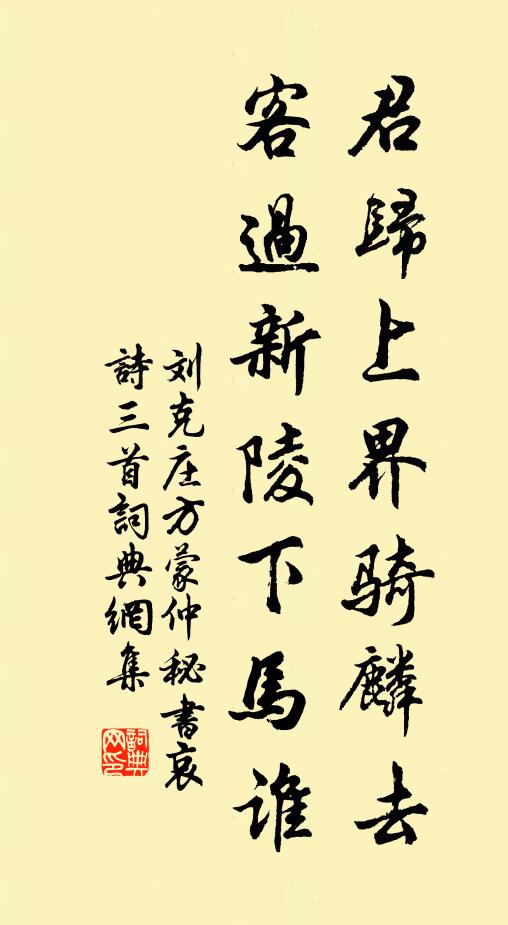 君歸上界骑麟去
客過新陵下馬誰
刘克庄方蒙仲秘書哀
詩三首詞典網集
詞典
网印